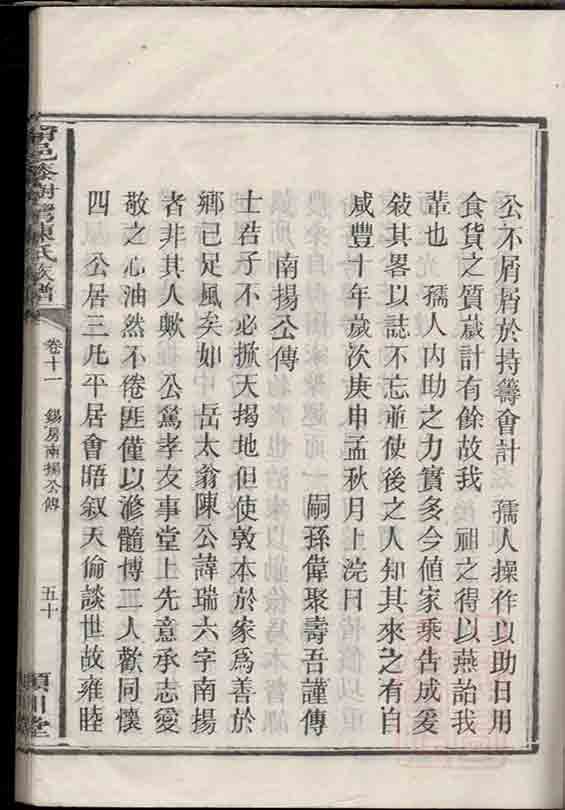 公不屑屑於持籌會計　孺人操作以助日用
食貨之質歲計有餘故我　祖之得以燕詒我
輩也　孺人內助之力實多今值家乘告成爰
敍其畧以誌不忘並使後之人知其來之有自
咸豐十年歲次庚申孟秋月上浣日
嗣孫偉聚壽吾謹傳
南揚公傳
士君子不必掀天揭地但使敦本於家爲善於
鄉已足風矣如　岳太翁陳公諱瑞六字南揚
者非其人歟　公篤孝友事堂上先意承志愛
敬之心油然不倦匪僅以滫髓博二人歡同懷
四　公居三凡平居會晤叙天倫談世故雍睦
邑 陳氏族譜
卷十一
錫房南揚公傳
五十
潁川堂